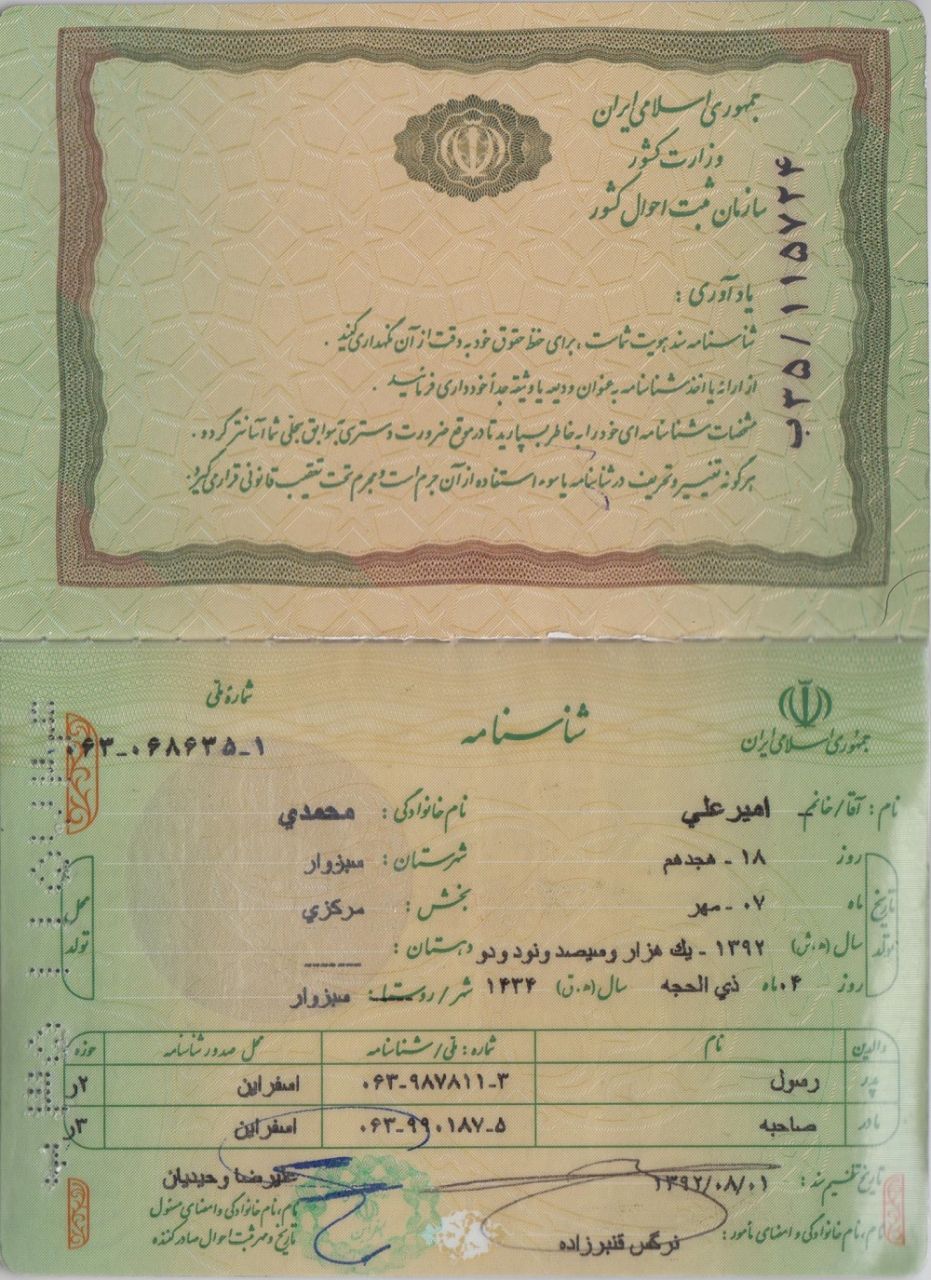 جمهوری اسلامی ایران
وزارت کشور
سازمان ثبت احوال کشور
ب۳۵/۱۱۵۷۲۴
یادآوری :
شناسنامه سند هویت شماست ، برای حفظ حقوق خود به دقت از آن نگهداری کنید .
از ارائه یا اخذ شناسنامه به عنوان ودیعه یا وثیقه جداً خودداری فرمائید .
مشخصات شناسنامه ای خود را به خاطر بسپارید تا در موقع ضرورت دسترسی به سوابق سجلی شما آسانتر گردد .
هرگونه تغییر و تحریف در شناسنامه یا سوء استفاده از آن جرم است و مجرم تحت تعقیب قانونی قرار می گیرد .
جمهوری اسلامی ایران
شناسنامه
شماره ملی
۰۶۳-۰۶۸۶۳۵-۱
نام : آقا/خانم امیرعلي نام خانوادگی : محمدي
تاریخ تولد
روز ۱۸ - هجدهم شهرستان : سبزوار
ماه ۰۷ - مهر بخش : مرکزي
سال (ه.ش) ۱۳۹۲ - یك هزار وسیصد ونود ودو دهستان : ------
روز ۰۴ ماه ذي الحجه سال (ه.ق) ۱۴۳۴ شهر/روستا : سبزوار
محل تولد
والدین نام شماره : ملی/شناسنامه محل صدور شناسنامه حوزه
پدر رسول ۰۶۳-۹۸۷۸۱۱-۳ اسفراین ۲ر
مادر صاحبه ۰۶۳-۹۹۰۱۸۷-۵ اسفراین ۳ر
تاریخ تنظیم سند : ۱۳۹۲/۰۸/۰۱
علیرضا وحیدیان
نام، نام خانوادگی و امضای مأمور : نرگس قنبرزاده
نام، نام خانوادگی و امضای مسئول
تاریخ و مهر ثبت احوال صادر کننده